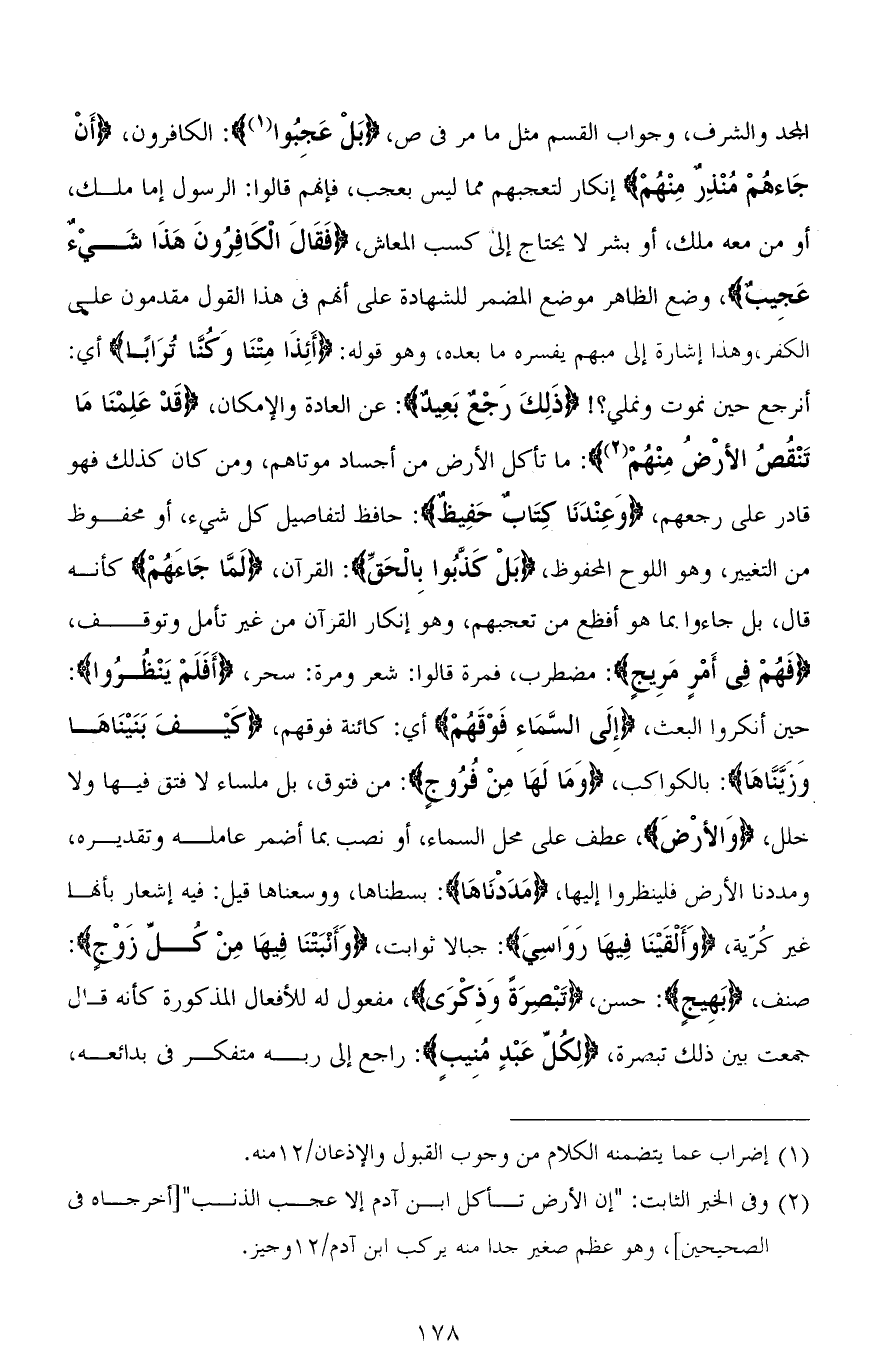 المجد والشرف، وجواب القسم مثل ما مر فى ص، ﴿بَلْ عَجِبُوا(١)﴾: الكافرون، ﴿أَنْ
جَاءهُمْ مُنْذِرٌ مِنْهُمْ﴾ إنكار لتعجبهم مما ليس بعجب، فإنهم قالوا: الرسول إما ملك،
أو من معه ملك، أو بشر لا يحتاج إلى كسب المعاش، ﴿فَقَالَ الْكَافِرُونَ هَذَا شَيْءٌ
عَجِيبٌ﴾، وضع الظاهر موضع المضمر للشهادة على أنهم فى هذا القول مقدمون على
الكفر،وهذا إشارة إلى مبهم يفسره ما بعده، وهو قوله: ﴿أَئِذَا مِتْنَا وَكُنَّا تُرَابًا﴾ أي:
أنرجع حين نموت ونملي؟! ﴿ذَلِكَ رَجْعٌ بَعِيدٌ﴾: عن العادة والإمكان، ﴿قَدْ عَلِمْنَا مَا
تَنْقُصُ الأَرْضُ مِنْهُمْ(٢)﴾: ما تأكل الأرض من أجساد موتاهم، ومن كان كذلك فهو
قادر على رجعهم، ﴿وَعِنْدَنَا كِتَابٌ حَفِيظٌ﴾: حافظ لتفاصيل كل شيء، أو محفوظ
من التغيير، وهو اللوح المحفوظ، ﴿بَلْ كَذَّبُوا بِالْحَقِّ﴾: القرآن، ﴿لَمَّا جَاءَهُمْ﴾ كأنه
قال، بل جاءوا بما هو أفظع من تعجبهم، وهو إنكار القرآن من غير تأمل وتوقف،
﴿فَهُمْ فِى أَمْرٍ مَرِيجٍ﴾: مضطرب، فمرة قالوا: شعر ومرة: سحر، ﴿أَفَلَمْ يَنْظُرُوا﴾:
حين أنكروا البعث، ﴿إِلَى السَّمَاءِ فَوْقَهُمْ﴾ أي: كائنة فوقهم، ﴿كَيْفَ بَنَيْنَاهَا
وَزَيَّنَّاهَا﴾: بالكواكب، ﴿وَمَا لَهَا مِنْ فُرُوجٍ﴾: من فتوق، بل ملساء لا فتق فيها ولا
خلل، ﴿وَالأرْضَ﴾، عطف على محل السماء، أو نصب بما أضمر عامله وتقديره،
ومددنا الأرض فلينظروا إليها، ﴿مَدَدْنَاهَا﴾: بسطناها، ووسعناها قيل: فيه إشعار بأنها
غير كُرّية، ﴿وَأَلْقَيْنَا فِيهَا رَوَاسِيَ﴾: جبالا ثوابت، ﴿وَأَنْبَتْنَا فِيهَا مِنْ كُلِّ زَوْجٍ﴾:
صنف، ﴿بَهِيجٍ﴾: حسن، ﴿تَبْصِرَةً وَذِكْرَى﴾، مفعول له للأفعال المذكورة كأنه قال
جمعت بين ذلك تبصرة، ﴿لِكُلِّ عَبْدٍ مُنِيبٍ﴾: راجع إلى ربه متفكر فى بدائعه،
(١) إضراب عما يتضمنه الكلام من وجوب القبول والإذعان/١٢منه.
(٢) وفى الخبر الثابت: "إن الأرض تأكل ابن آدم إلا عجب الذنب"[أخرجاه فى
الصحيحين]، وهو عظم صغير جدا منه يركب ابن آدم/١٢وجيز.
١٧٨